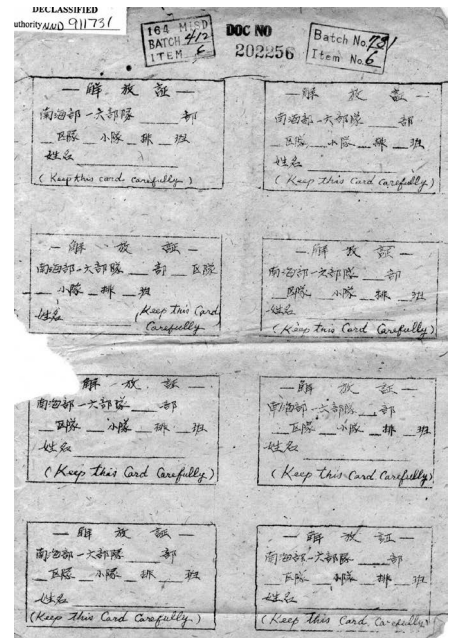 DECLASSIFIED
Authority NND 911731
164 MISD
BATCH 412
ITEM 6
DOC NO
202256
Batch No. 781
Item No. 6
— 解 放 証 —
南海部一六部隊 ___ 部
__ 区隊 __ 小隊 __ 排 __ 班
姓名
(Keep this card carefully)
— 解 放 証 —
南海部一六部隊 ___ 部
__ 区隊 __ 小隊 __ 排 __ 班
姓名
(Keep this Card Carefully)
— 解 放 証 —
南海部一六部隊 ___ 部 __ 区隊
__ 小隊 __ 排 __ 班
姓名 (Keep this Card
Carefully
— 解 放 証 —
南海部一六部隊 ___ 部
__ 区隊 __ 小隊 __ 排 __ 班
姓名
(Keep this Card Carefully)
解 放 証 —
南海部一六部隊 ___ 部
__ 区隊 __ 小隊 __ 排 __ 班
姓名
(Keep this Card Carefully)
— 解 放 証 —
南海部一六部隊 ___ 部
__ 区隊 __ 小隊 __ 排 __ 班
姓名
(Keep this Card Carefully)
— 解 放 証 —
南海部一六部隊 ___ 部
__ 区隊 __ 小隊 __ 排 __ 班
姓名
(Keep this Card Carefully.)
— 解 放 証 —
南海部一六部隊 ___ 部
__ 区隊 __ 小隊 __ 排 __ 班
姓名
(Keep this Card Carefully)